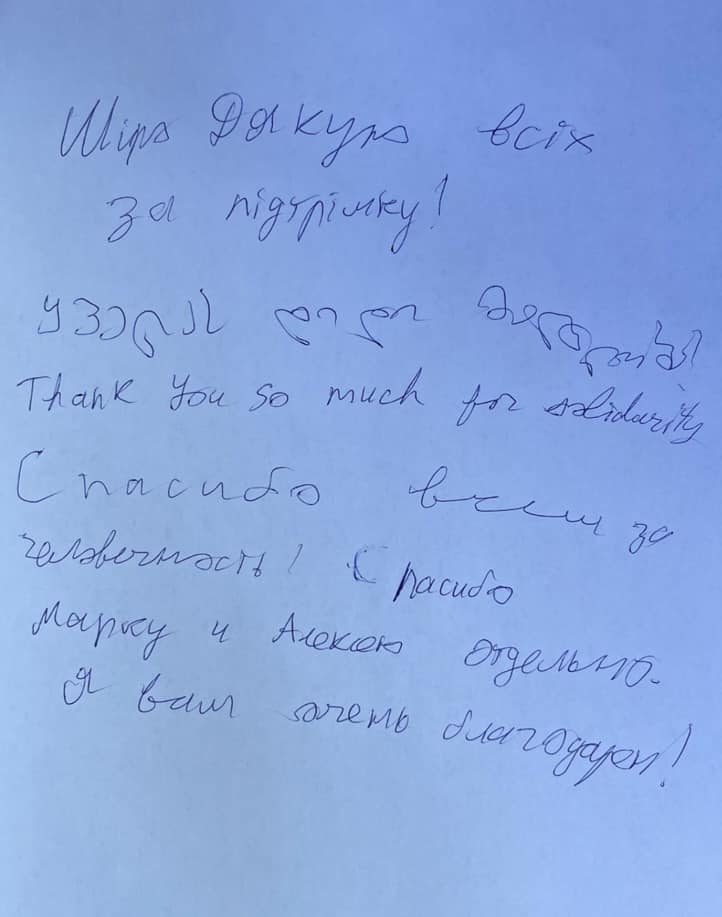 Щіро Дякую всіх
за підтрімку!
ყველას დიდი მადლობა!
Thank you so much for solidarity
Спасибо всем за
человечность! Спасибо
Марку и Алексею отдельно.
Я вам очень благодарен!